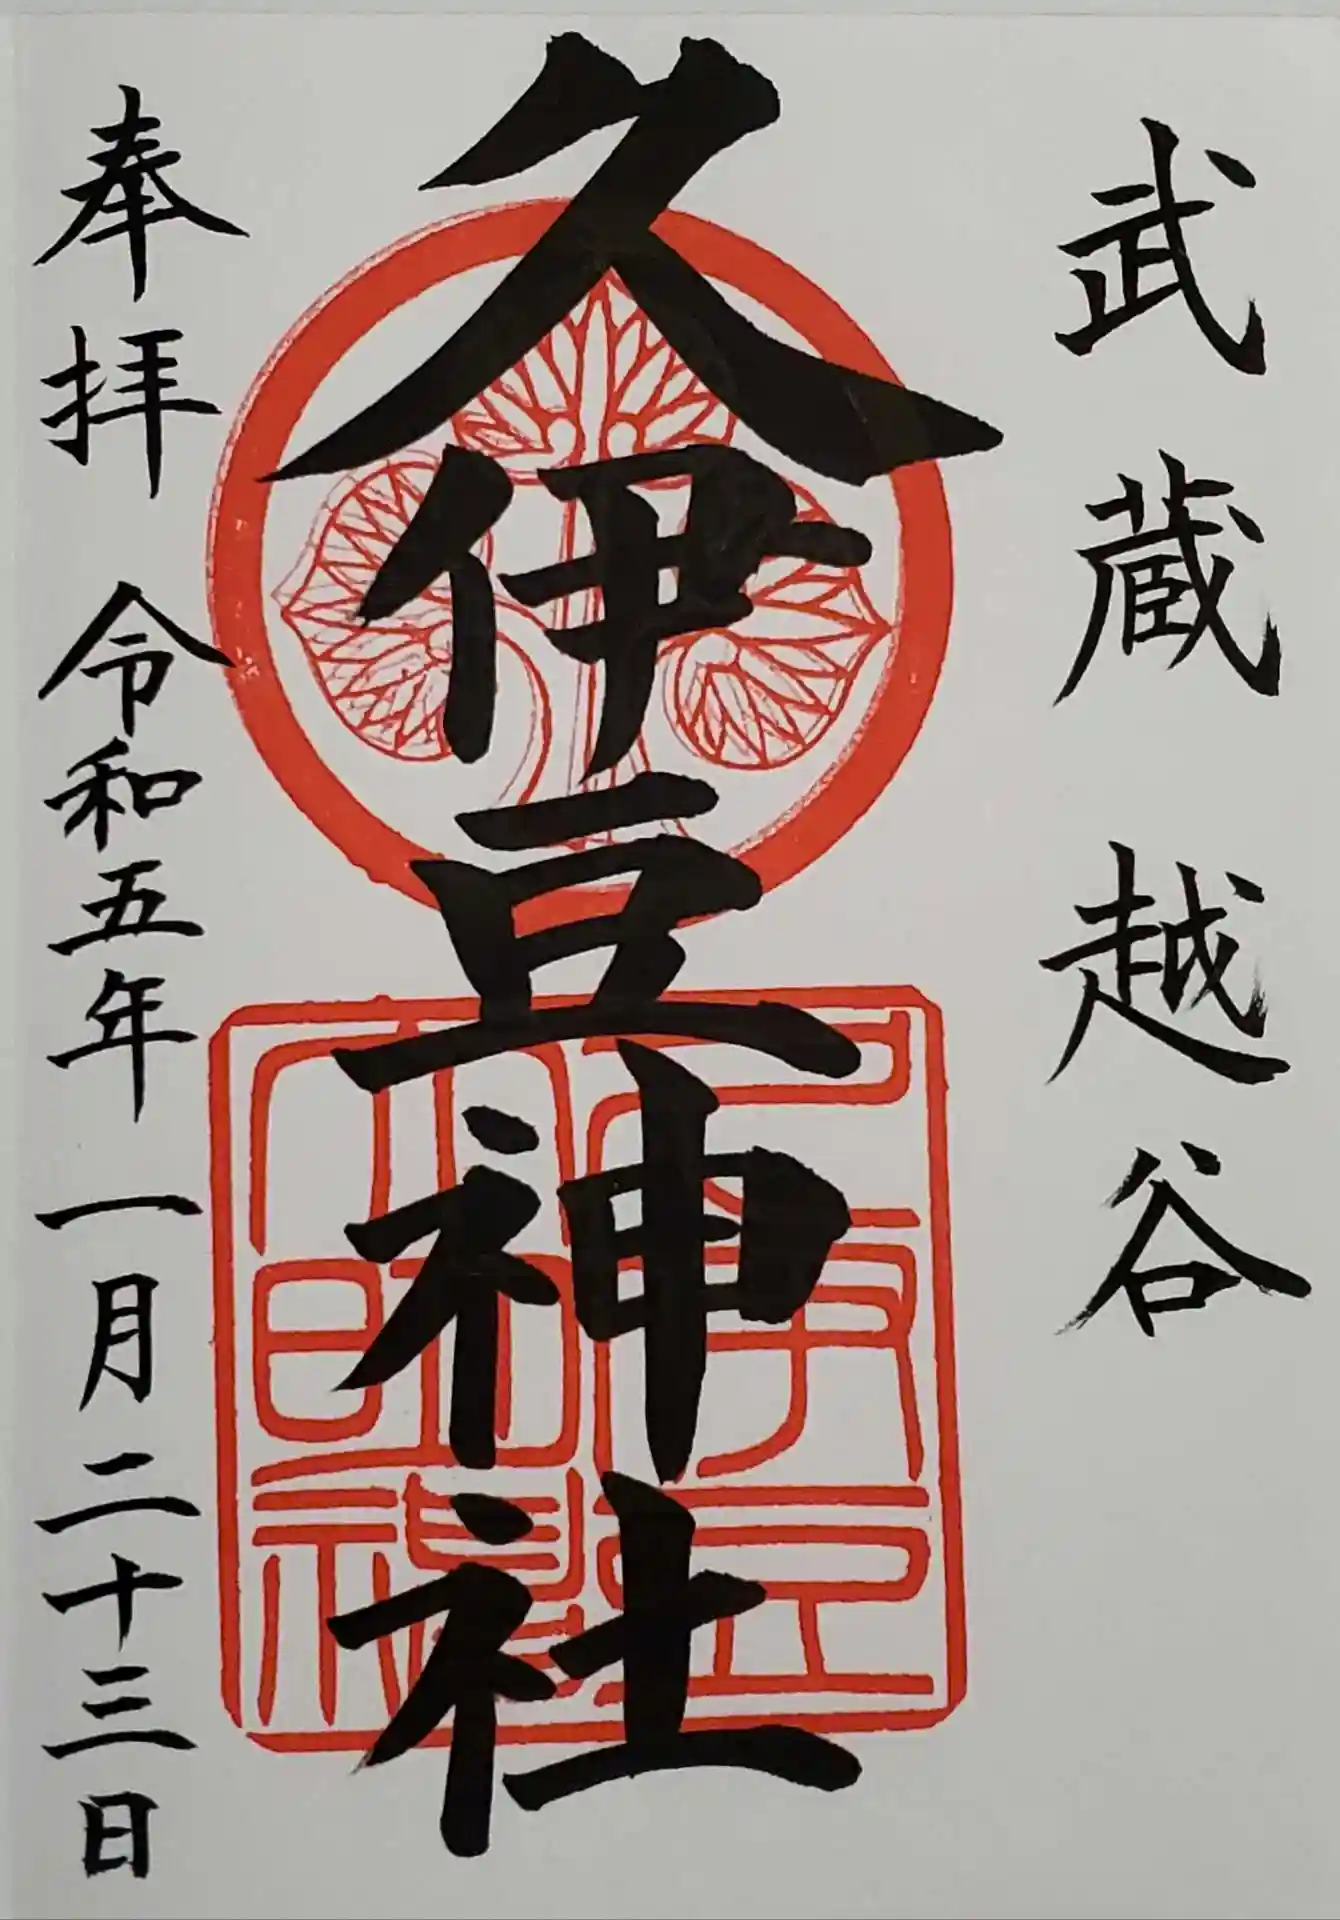 武蔵越谷
久伊豆神社
奉拝 令和五年一月二十三日